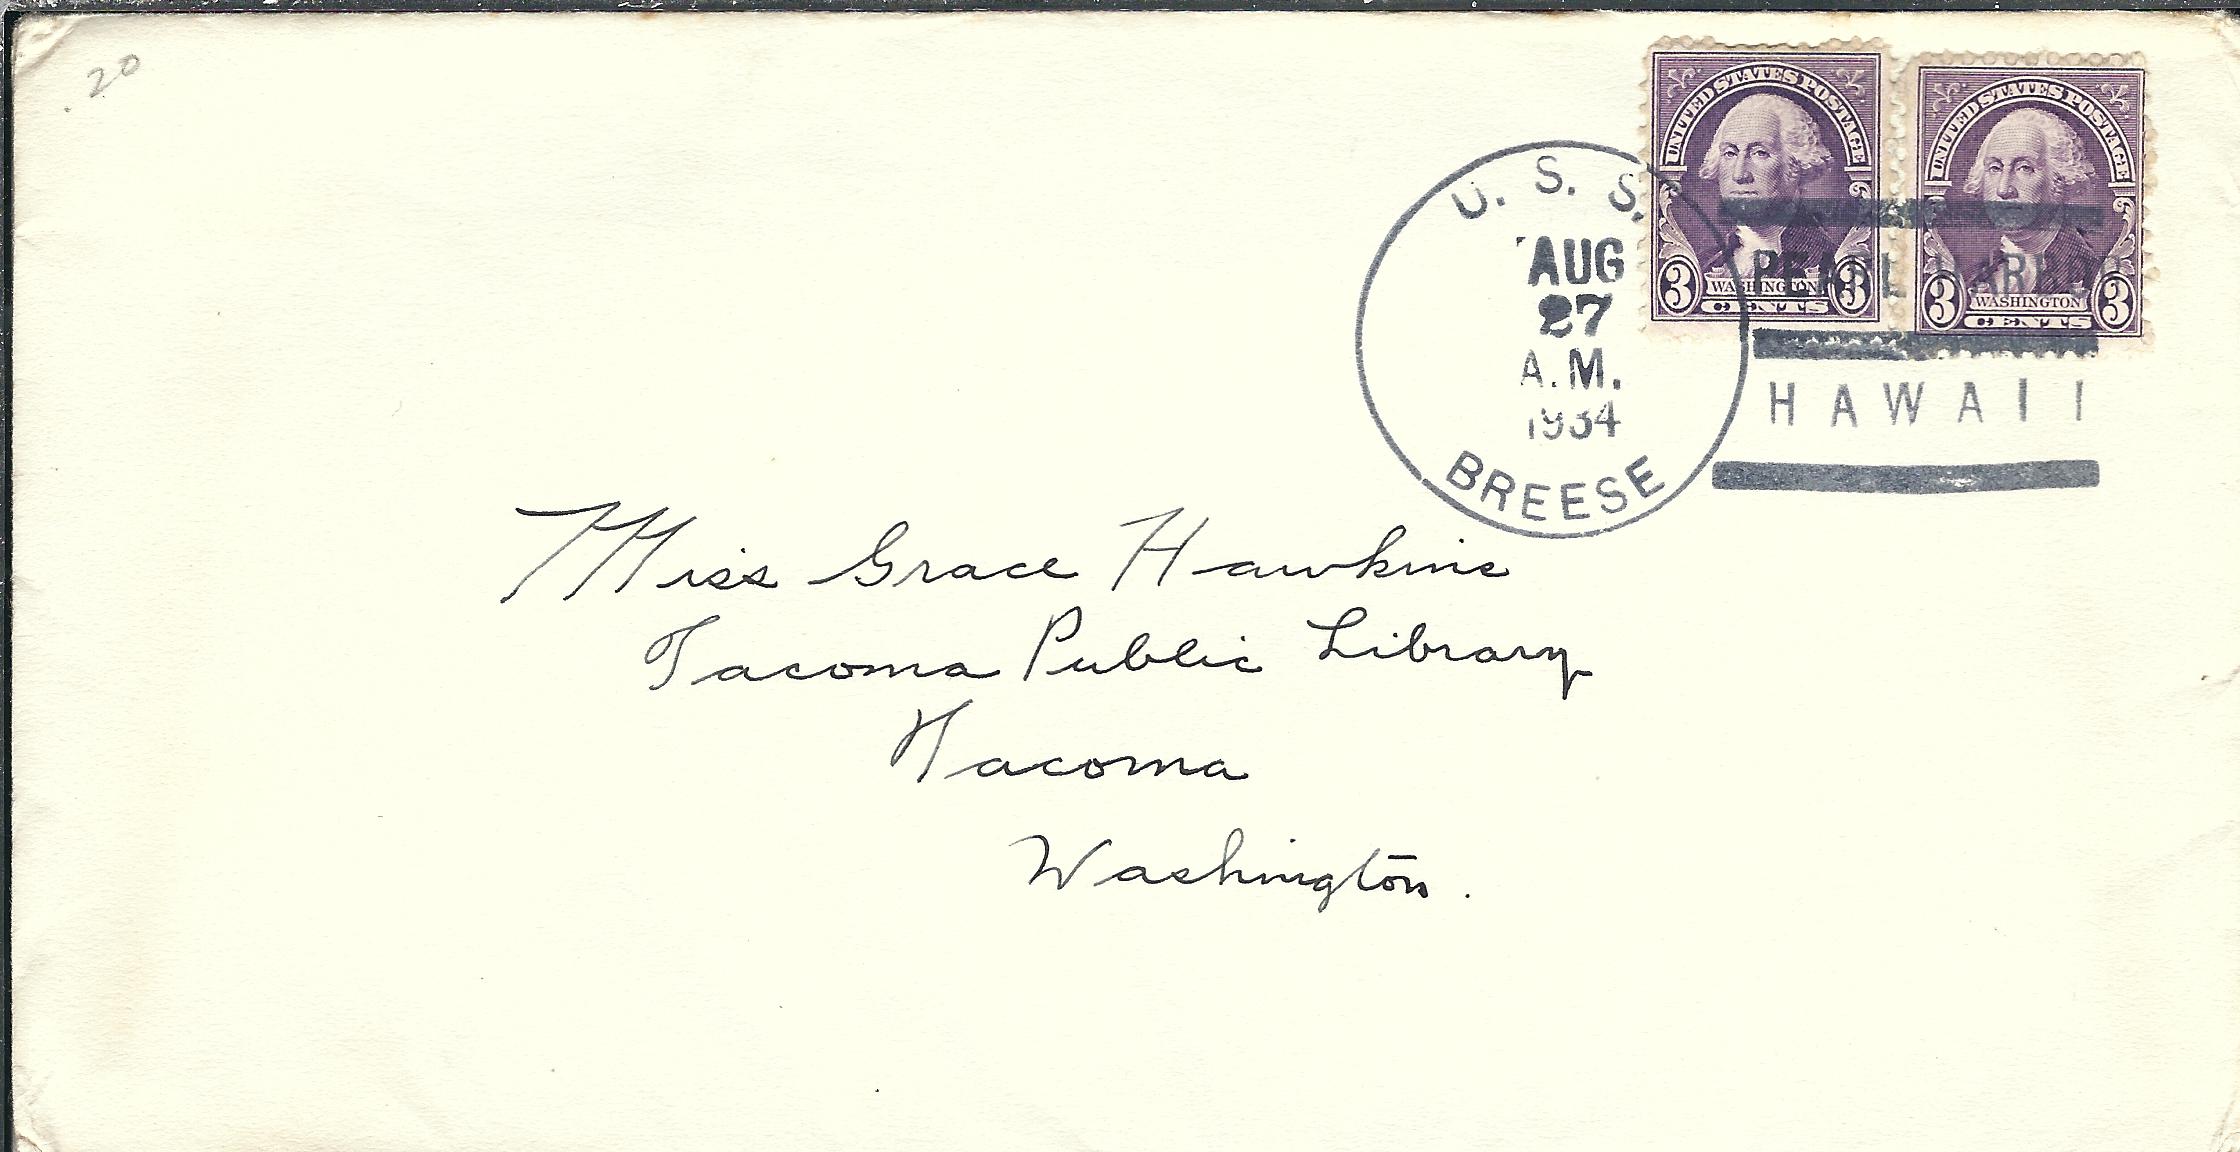 20
UNITED STATES POSTAGE
3 WASHINGTON 3
CENTS
UNITED STATES POSTAGE
3 WASHINGTON 3
CENTS
U. S. S.
AUG
27
A.M.
1934
BREESE
PEARL HARBOR
HAWAII
Miss Grace Hawkins
Tacoma Public Library
Tacoma
Washington.